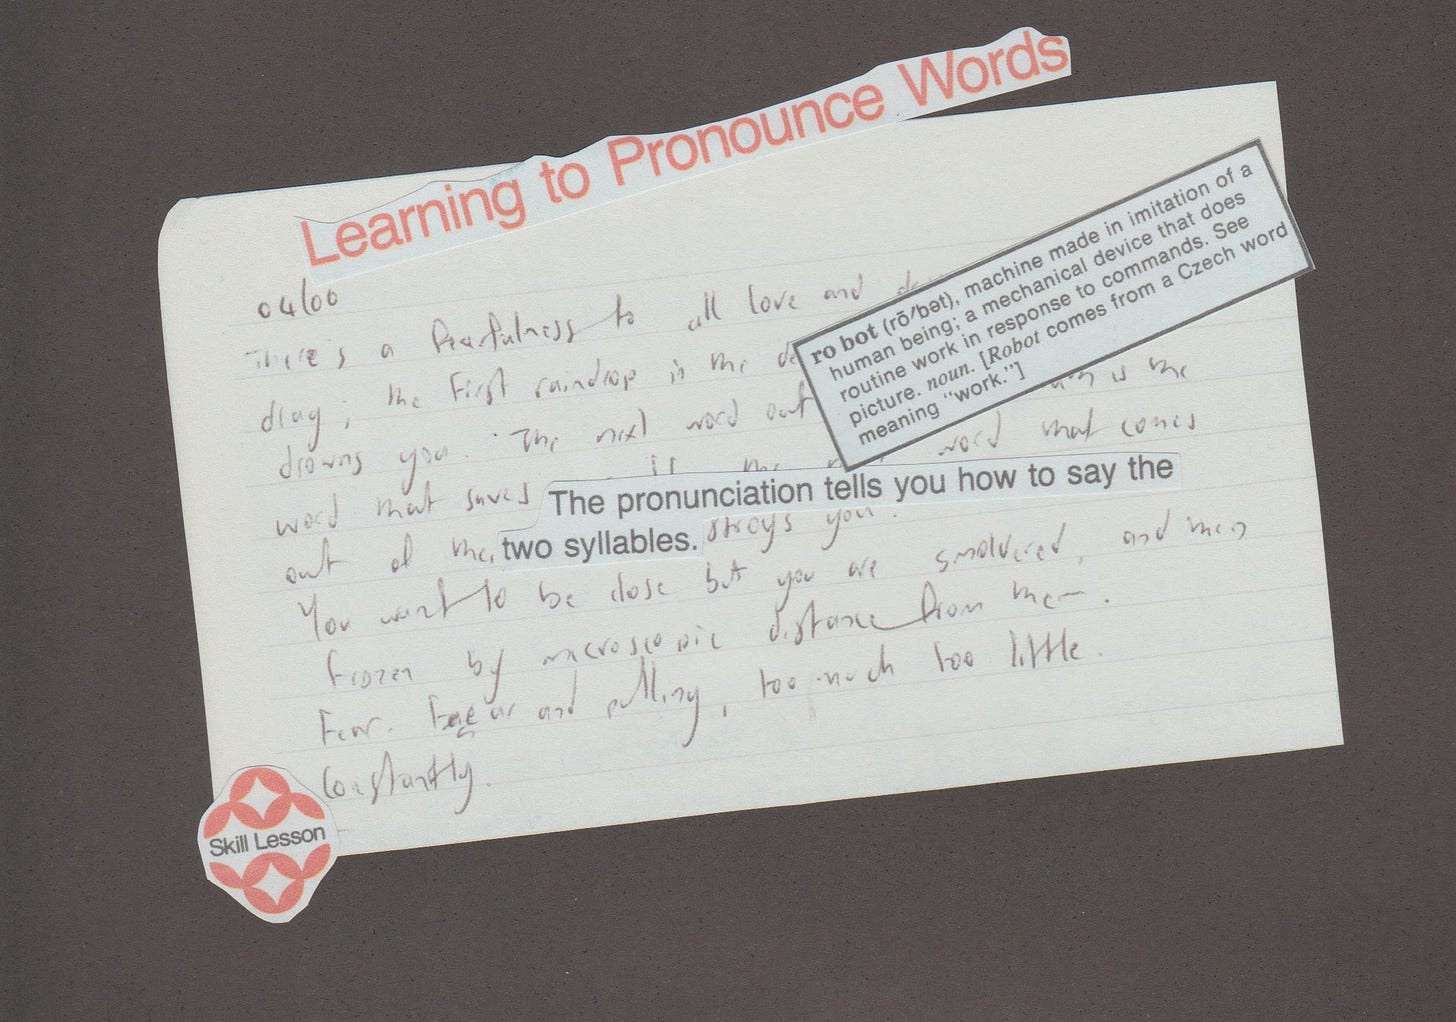 Learning to Pronounce Words
ro bot (rō′bət), machine made in imitation of a
human being; a mechanical device that does
routine work in response to commands. See
picture. noun. [Robot comes from a Czech word
meaning "work."]
04/00
There's a fearfulness to all love and
drag; the first raindrop is the
drowns you. The next word out is the
word that saves if the word that comes
The pronunciation tells you how to say the
two syllables.
out of the stroys you.
You want to be close but you are smoldered, and then
frozen by macroscopic distance from them.
Fear. and pulling, too much too little.
Constantly.
Skill Lesson